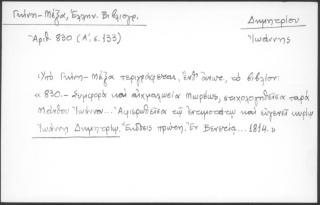 Γκίνη - Μέξα, Ἑλλην. Βιβλιογρ.
Δημητρίου
Ἀριθ. 830 (Α', σ. 133)
Ἰωάννης
Ὑπὸ Γκίνη - Μέξα περιγράφεται, ἐνθ' ἄνωτ., τὸ βιβλίον:
« 830.- Συμφορὰ καὶ αἰχμαλωσία Μωρέως, στιχολογηθεῖσα παρὰ
Μάνθου Ἰωάννου... Ἀφιερωθεῖσα τῷ ἐντιμοτάτῳ καὶ εὐγενεῖ κυρίῳ
Ἰωάννῃ Δημητρίῳ. Ἔκδοσις πρώτη. Ἐν Βενετίᾳ... 1814.»